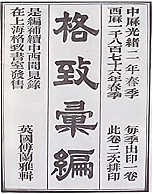 中厤光緒二年春季
西厤一千八百七十六年春季
每季出印一卷
此卷三次排印
格致彙編
是編補續中西聞見錄
在上海格致書室發售
英國傅蘭雅輯